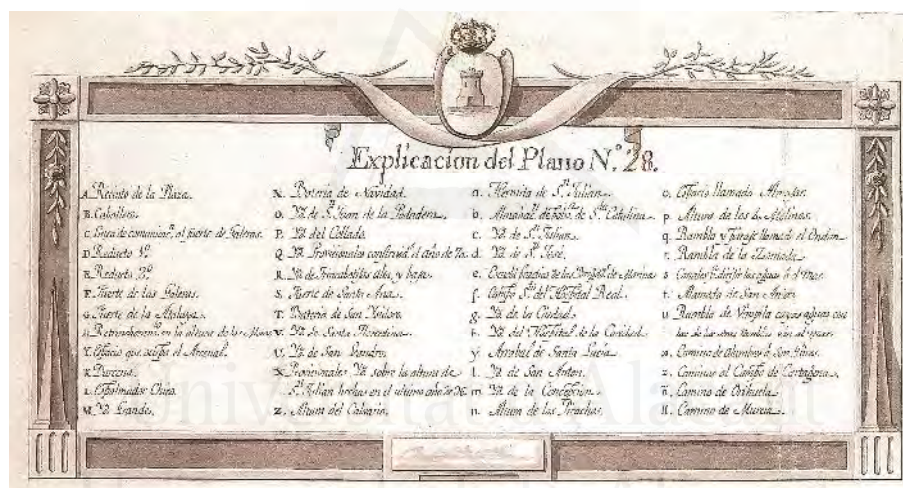 Explicacion del Plano N.º 28.
A. Recinto de la Plaza.
B. Caballero.
C. Linea de comunicac.ⁿ al fuerte de Galeras.
D. Reducto 1º
E. Reducto 2º
F. Fuerte de las Galeras.
G. Fuerte de la Atalaya.
H. en la altura de la
Y. Espacio que ocupa el Arsenal.
K. Darcena.
L. Espalmador Chico.
M. Yd. Grande.
N. Bateria de Navidad.
O. Yd. de Sⁿ Juan de la Podadera.
P. Yd. del Collado.
Q. Yd. Provicionales construid.ˢ el año de 70.
R. Yd. de Trincabotixas alta, y baxa.
S. Fuerte de Santa Ana.
T. Bateria de San Ysidoro.
V. Yd. de Santa Florentina.
U. Yd. de San Leandro.
X. Provicionales Yd. sobre la altura de
Sⁿ Julian hechas en el ultimo año de
Z. Altura del Calvario.
a. Hermita de Sⁿ Julian.
b. Almahaz. de Sᵗᵃ Catalina.
c. Yd. de Sⁿ Julian.
d. Yd. de Sⁿ Jose.
e. de Marina
f. Campo Sᵗᵒ del Hospital Real.
g. Yd. de la Ciudad.
h. Yd. del Hospital de la Caridad.
y. Arrabal de Santa Lucia.
l. Yd. de San Anton.
m. Yd. de la Concepcion.
n. Altura de las Pirachas.
o. Espacio llamado Almajar.
p. Altura de los Molinos.
q. Rambla y parage llamado el Ondon.
r. Rambla de la
s. Canales p.ª dirigir las aguas á el mar.
t. de San Anton
u. Rambla de Venipila cuyas aguas con
las de las otras Ramblas van al mar.
x. Camino de Alumbres á San Ginés.
z. Caminos al Campo de Cartagena.
õ. Camino de Orihuela.
ll. Camino de Murcia.
Universitat d'Alacant